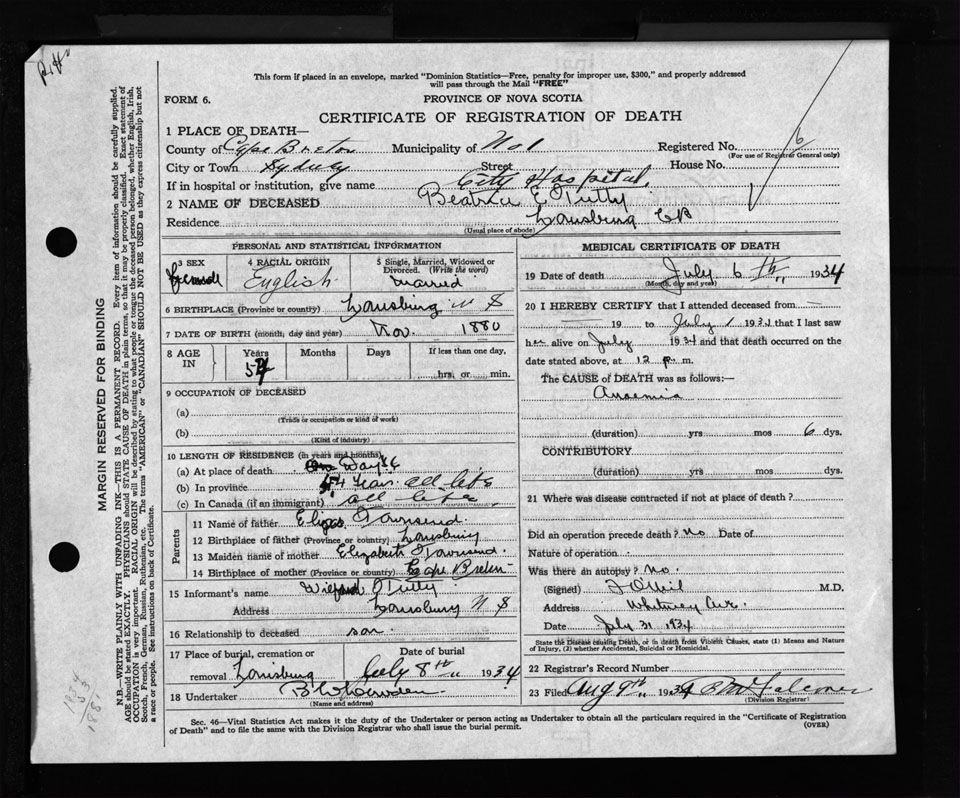 This form if placed in an envelope, marked "Dominion Statistics—Free, penalty for improper use, $300," and properly addressed
will pass through the Mail "FREE"
FORM 6.
PROVINCE OF NOVA SCOTIA
CERTIFICATE OF REGISTRATION OF DEATH
1 PLACE OF DEATH—
County of Cape Breton Municipality of No 1 Registered No. 6
(For use of Registrar General only)
City or Town Sydney Street House No.
If in hospital or institution, give name City Hospital
2 NAME OF DECEASED Beatrice E Tutty
Residence Louisburg CB
(Usual place of abode)
PERSONAL AND STATISTICAL INFORMATION
3 SEX Female
4 RACIAL ORIGIN English
5 Single, Married, Widowed or Divorced. (Write the word) married
6 BIRTHPLACE (Province or country) Louisburg N S
7 DATE OF BIRTH (month, day and year) Nov. 1880
8 AGE IN Years 54 Months Days If less than one day, hrs. or min.
9 OCCUPATION OF DECEASED
(a)
(Trade or occupation or kind of work)
(b)
(Kind of industry)
10 LENGTH OF RESIDENCE (in years and months)
(a) At place of death
(b) In province 54 Years all life
(c) In Canada (if an immigrant) all life
Parents
11 Name of father Townsend
12 Birthplace of father (Province or country) Louisburg
13 Maiden name of mother Elizabeth Townsend.
14 Birthplace of mother (Province or country) Cape Breton
15 Informant's name Wilfred Tutty
Address Louisburg N S
16 Relationship to deceased son
17 Place of burial, cremation or removal Louisburg
Date of burial July 8th 1934
18 Undertaker
(Name and address)
MEDICAL CERTIFICATE OF DEATH
19 Date of death July 6th 1934
(Month, day and year)
20 I HEREBY CERTIFY that I attended deceased from
19 to July 1 1934 that I last saw
her alive on July 1934 and that death occurred on the
date stated above, at 12 p. m.
The CAUSE of DEATH was as follows:—
Anaemia
(duration) yrs mos 6 dys.
CONTRIBUTORY
(duration) yrs mos dys.
21 Where was disease contracted if not at place of death?
Did an operation precede death? No Date of
Nature of operation
Was there an autopsy? No.
(Signed) M.D.
Address Whitney Ave.
Date July 31 1934
State the Disease causing Death, or in death from Violent Causes, state (1) Means and Nature
of Injury, (2) whether Accidental, Suicidal or Homicidal.
22 Registrar's Record Number
23 Filed Aug 9th 1934
(Division Registrar)
Sec. 46—Vital Statistics Act makes it the duty of the Undertaker or person acting as Undertaker to obtain all the particulars required in the "Certificate of Registration
of Death" and to file the same with the Division Registrar who shall issue the burial permit.
(OVER)
MARGIN RESERVED FOR BINDING
N.B.—WRITE PLAINLY WITH UNFADING INK—THIS IS A PERMANENT RECORD. Every item of information should be carefully supplied.
AGE should be stated EXACTLY. PHYSICIANS should STATE CAUSE OF DEATH in plain terms, so that it may be properly classified. Exact statement of
OCCUPATION is very important. RACIAL ORIGIN will be described by stating to what people or tongue the deceased person belonged, whether English, Irish,
Scotch, French, German, Russian, Ruthenian, etc. The terms "AMERICAN" or "CANADIAN" SHOULD NOT BE USED as they express citizenship but not
a race or people. See instructions on back of Certificate.